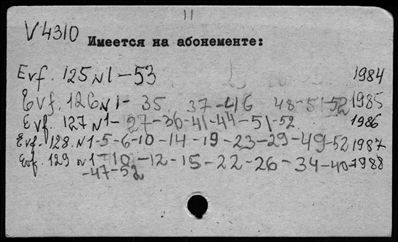 11
V4310
Имеется на абонементе:
Evf. 125 N1-53 1984
Evf. 126 N1- 35 37-46 48-51-52 1985
Evf. 127 N1-27-36-41-44-51-52 1986
Evf. 128. N1-5-6-10-14-19-23-29-49-52 1987
Evf. 129 N1-10-12-15-22-26-34-40- 1988
-47-52